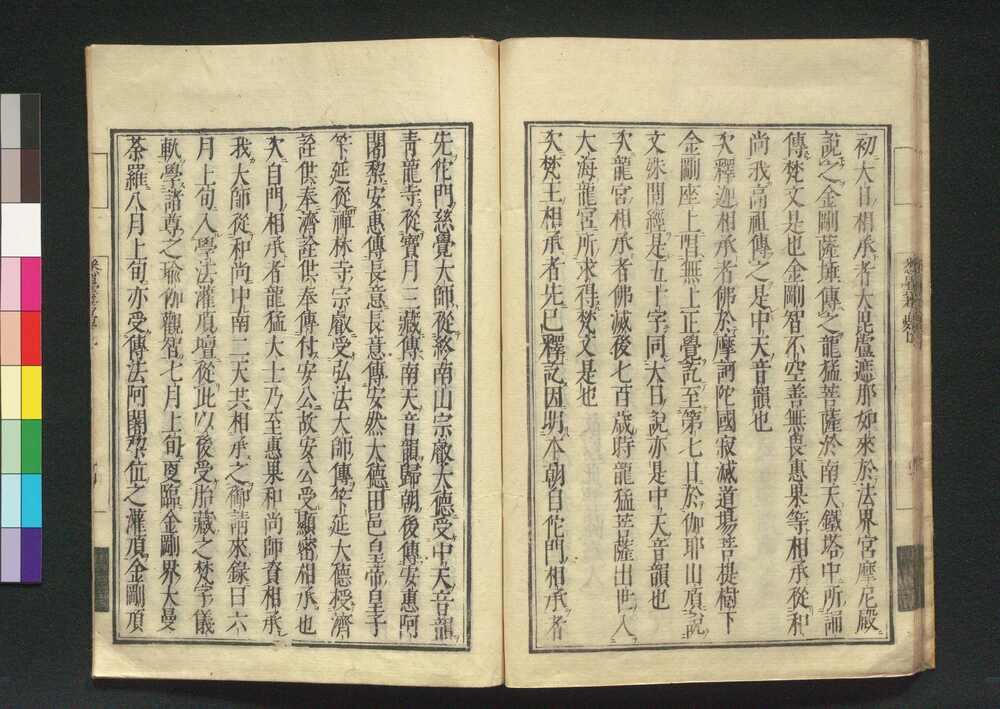 初大日相承者大毘盧遮那如來於法界宮摩尼殿
說之金剛薩埵傳之龍猛菩薩於南天鐵塔中所誦
傳梵文是也金剛智不空善無畏惠果等相承從和
尚我高祖傳之是中天音韻也
次釋迦相承者佛於摩訶陀國寂滅道場菩提樹下
金剛座上唱無上正覺訖至第七日於伽耶山頂說
文殊問經是五十字同大日說亦是中天音韻也
次龍宮相承者佛滅後七百歲時龍猛菩薩出世入
大海龍宮所求得梵文是也
次梵王相承者先已釋訖因明本朝自佗門相承者
先佗門慈覺大師從終南山宗叡大德受中天音韻
青龍寺從寶月三藏傳南天音韻歸朝後傳安惠阿
闍黎安惠傳長意長意傳安然大德田邑皇帝皇子
竺延從禪林寺宗叡受弘法大師傳竺延大德授濟
詮供奉濟詮供奉傳付安公故安公受顯密相承也
次自門相承者龍猛大士乃至惠果和尚師資相承
我大師從和尚中南二天共相承之御請來錄曰六
月上旬入學法灌頂壇從此以後受胎藏之梵字儀
軌學諸尊之瑜伽觀智七月上旬更臨金剛界大曼
荼羅八月上旬亦受傳法阿闍黎位之灌頂金剛頂